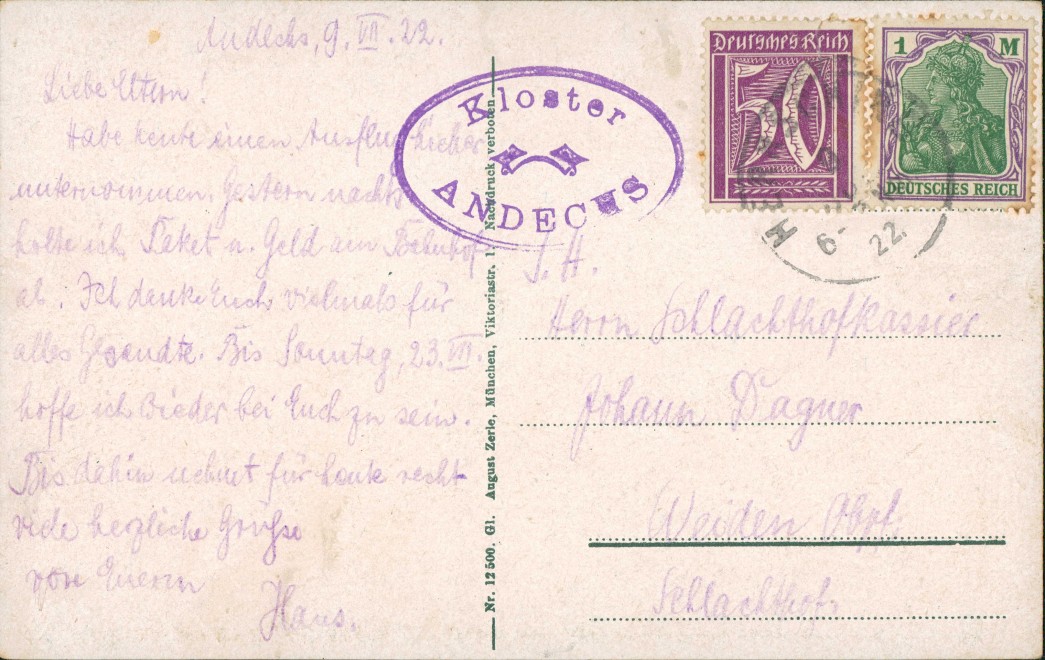 Andechs, 9. VII. 22.
Liebe Eltern!
Habe heute einen Ausflug hieher
unternommen. Gestern nachts
holte ich Paket u. Geld am Bahnhof
ab. Ich danke Euch vielmals für
alles Gesandte. Bis Sonntag, 23. VII.
hoffe ich wieder bei Euch zu sein.
Bis dahin nehmt für heute recht
viele herzliche Grüße
von Euerm
Hans.
Kloster
ANDECHS
Nr. 12 500. Gl. August Zerle, München, Viktoriastr. 1. Nachdruck verboten
Deutsches Reich
50
1 M
DEUTSCHES REICH
6-
22.
S. H.
Herrn Schlachthofkassier
Johann Dagner
Weiden Obpf.
Schlachthof.